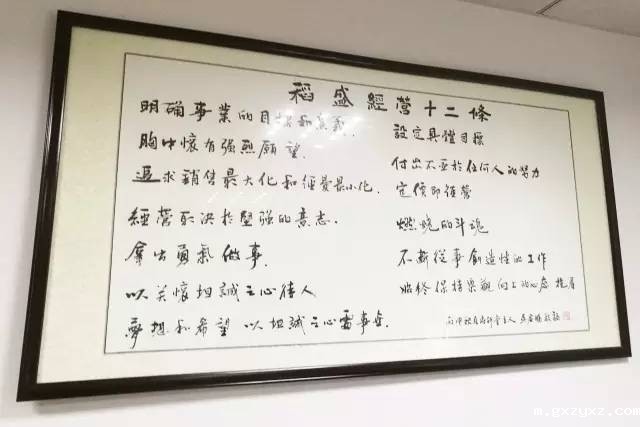 稻盛經營十二條
明确事業的目的和意義.
設定具體目標
胸中懷有强烈願望.
付出不亞於任何人的努力
追求銷售最大化和經費最小化.
定價即經營
經營取決於堅强的意志.
燃燒的斗魂
拿出勇氣做事.
不斷從事創造性的工作
以关懷坦誠之心待人
始終保持樂觀向上的心态 抱着
夢想和希望 以坦誠之心處事.
m.gxzyxz.com